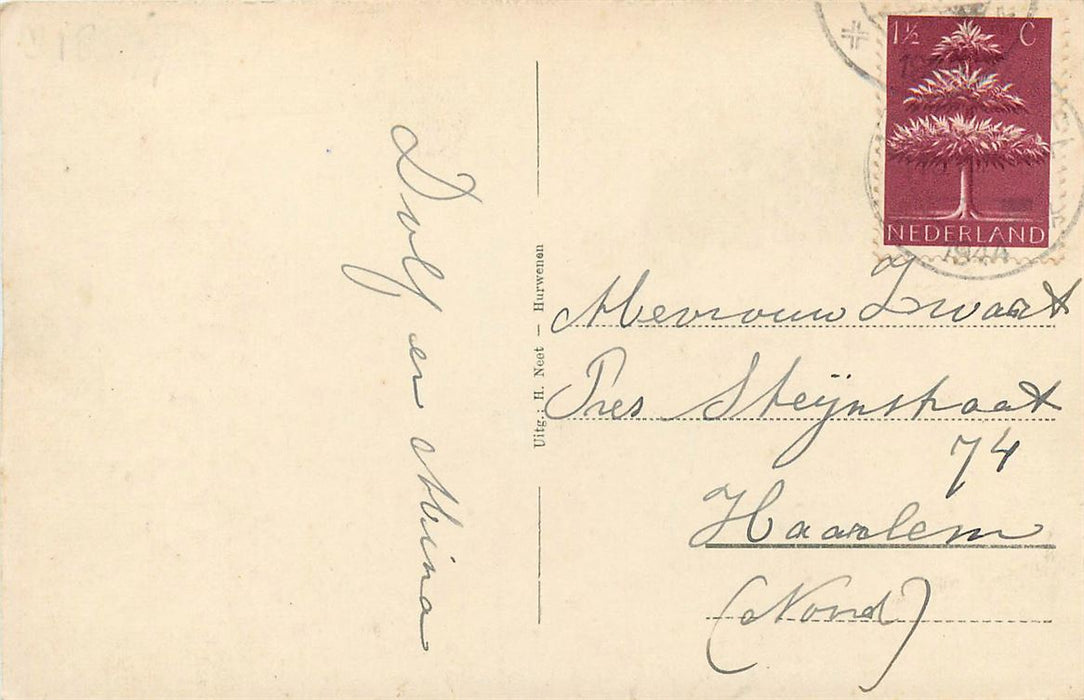 1½ C
NEDERLAND
1944
Dolf en Mina
Uitg.: H. Neet — Hurwenen
Mevrouw Zwart
Pres Steijnstraat
74
Haarlem
(Noord)